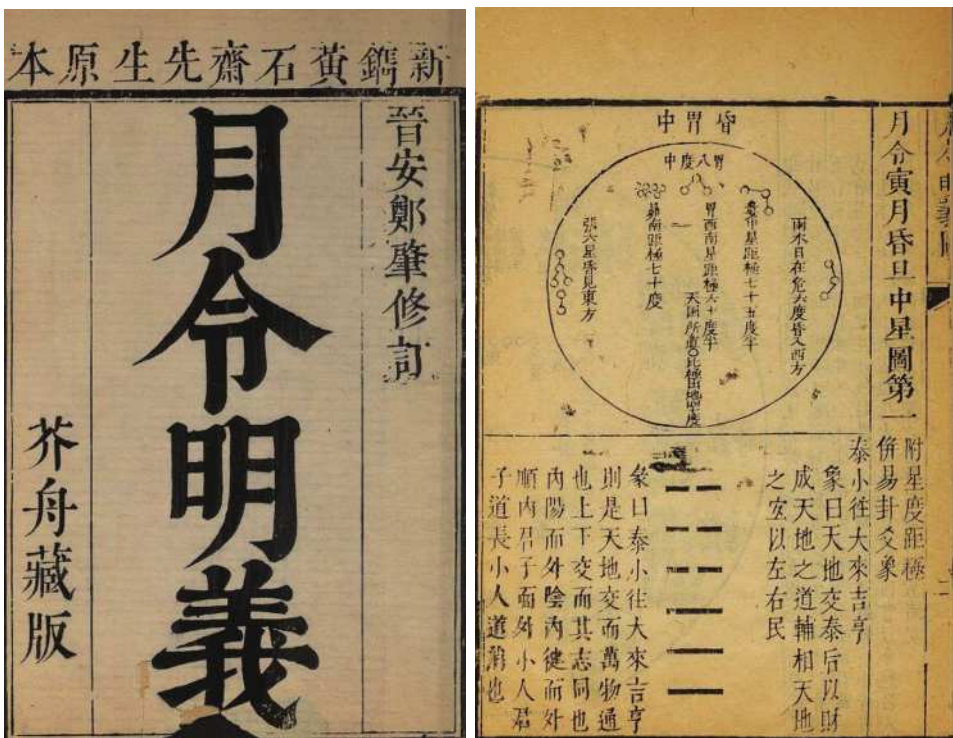 新鐫黃石齋先生原本
晉安鄭肇修訂
月令明義
芥舟藏版
月令明義圖
月令寅月昏旦中星圖第一
附星度距極
併易卦爻象
昏胃中
胃八度中
雨水日在危六度昏入西方
婁中星距極七十五度半
胃西南星距極六十度半
昴南距極七十度
張六星昏見東方
泰小往大來吉亨
象曰天地交泰后以財
成天地之道輔相天地
之宐以左右民
彖曰泰小往大來吉亨
則是天地交而萬物通
也上下交而其志同也
內陽而外陰內健而外
順內君子而外小人君
子道長小人道消也